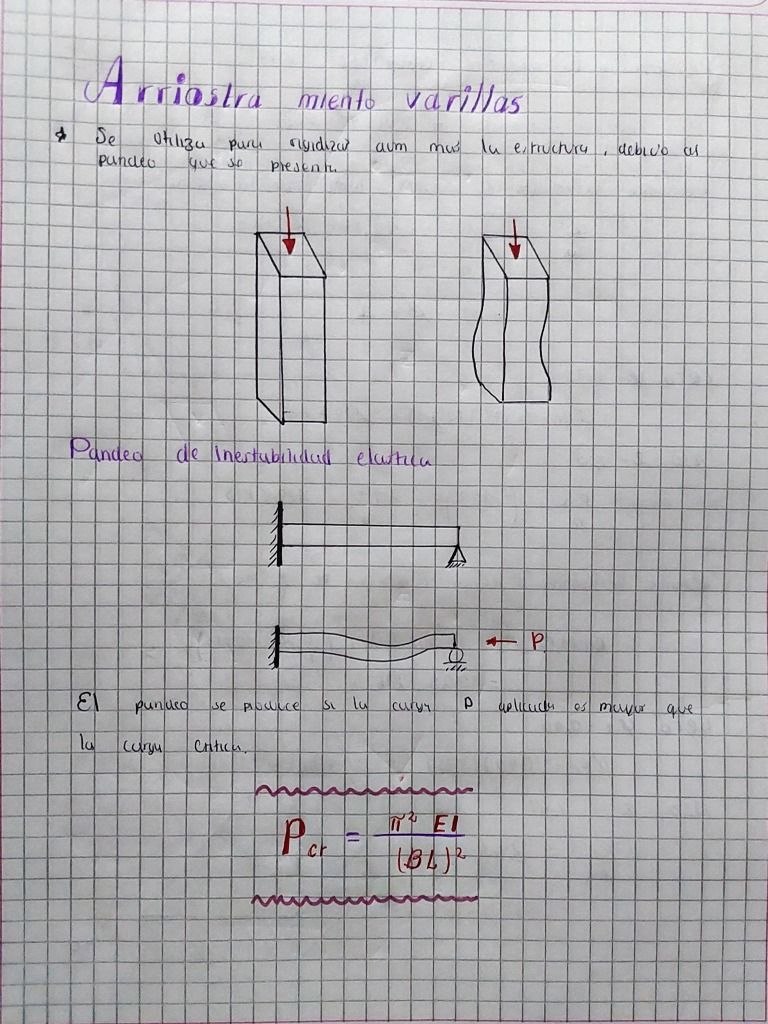 Arriostra miento varillas
* Se utiliza para rigidizar aum mas la estructura, debido al
pandeo que se presenta
Pandeo de Inestabilidad elastica
P
El pandeo se produce si la carga P aplicada es mayor que
la carga critica.
Pcr = π² EI / (BL)²